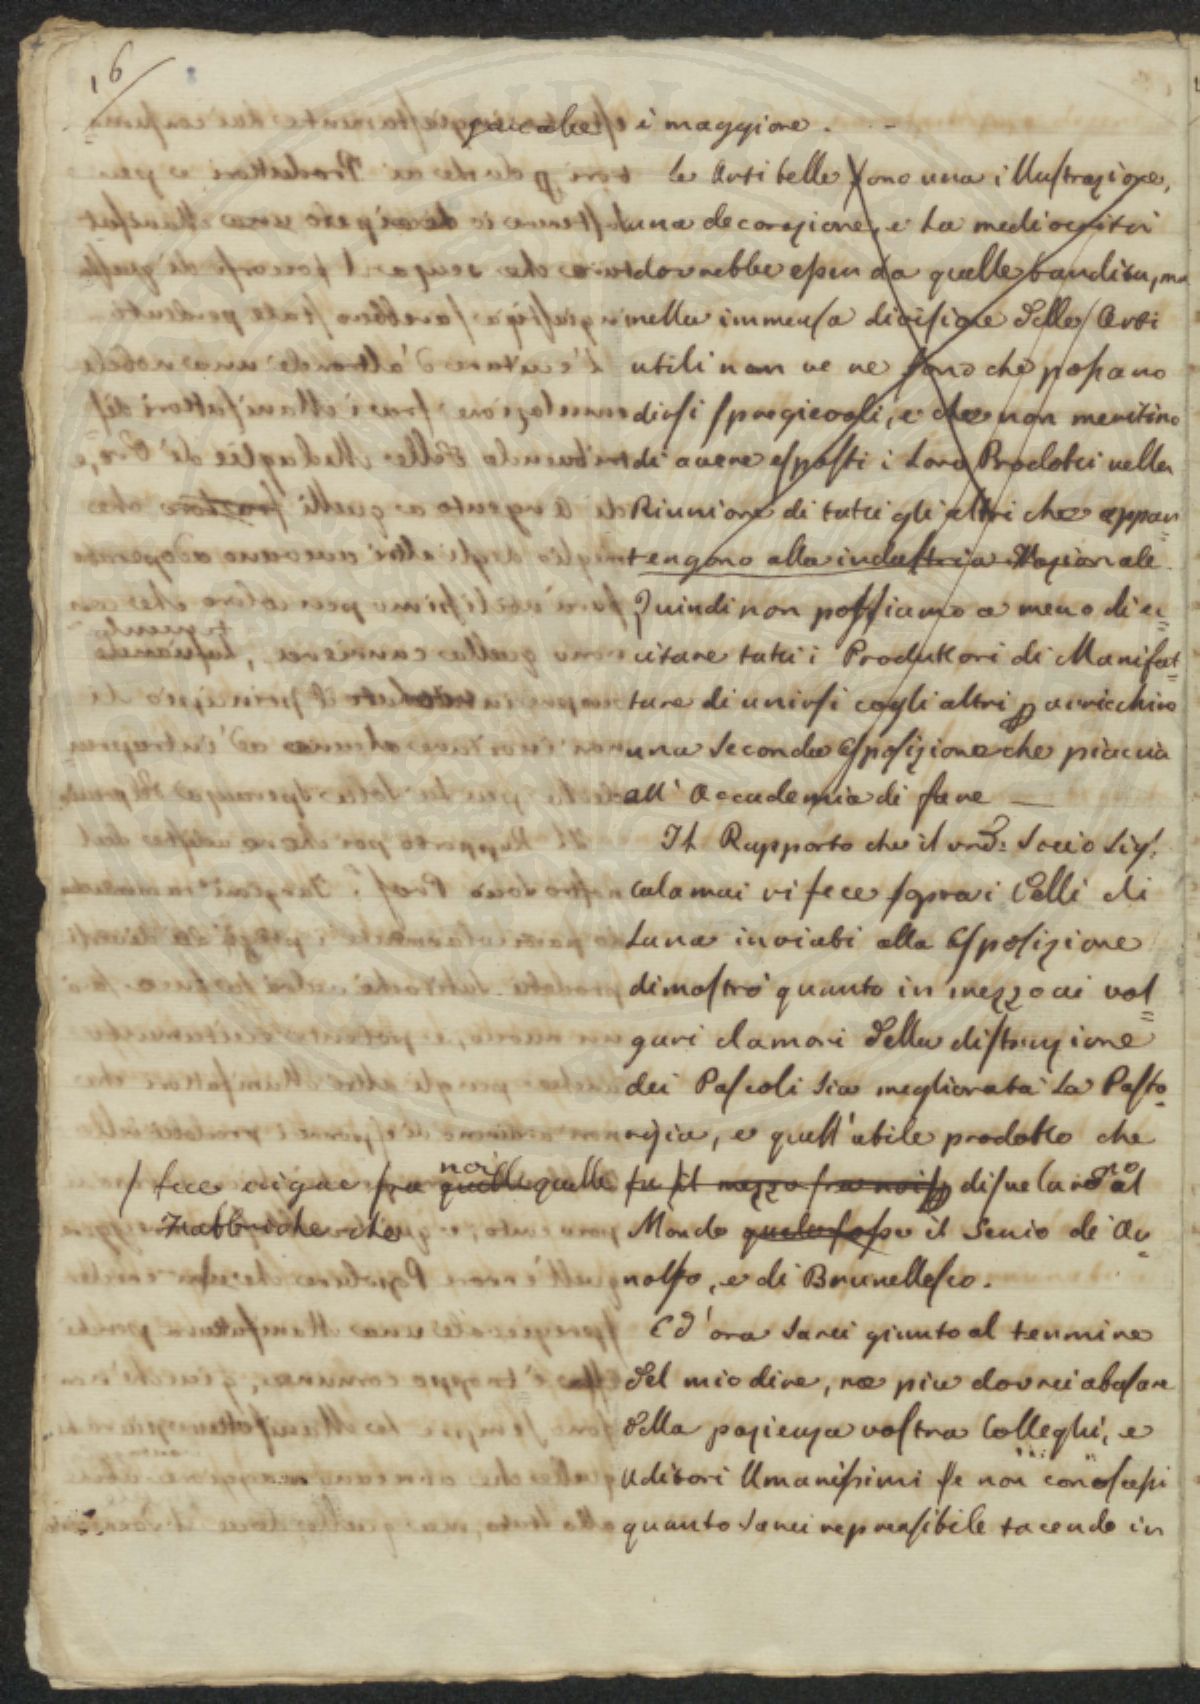 16
giacche i maggiore.
Le Arti belle sono una illustrazione,
una decorazione, e la mediocrità
dovrebbe esser da quelle bandita, ma
nella immensa divisione delle Arti
utili non ve ne sono che possano
dirsi spregievoli, e che non meritino
di avere esposti i loro Prodotti nella
Riunione di tutti gli altri che appar
tengono alla industria Nazionale
Quindi non possiamo a meno di ec=
citare tutti i Produttori di Manifat=
ture di unirsi cogli altri p arricchire
una seconda Esposizione che piacerà
all' Accademia di fare
Il Rapporto che il vro: Socio Sig:
Calamai vi fece sopra i Velli di
Lana inviati alla Esposizione
dimostrò quanto in mezzo ai vol=
gari clamori della distruzione
dei Pascoli sia megliorata la Pasto=
rizia, e quell'utile prodotto che
/ fece vigne fra noi quelle quelle
Fabbriche che
fu il mezzo fra noi p disvelarono al
Mondo quale fosse il Genio di Ar=
nolfo, e di Brunellesco.
Ed' ora sarei giunto al termine
del mio dire, ne piu dovrei abusare
della pazienza vostra Colleghi, e
Uditori Umanissimi se non conoscessi
quanto sarei reprensibile tacendo in